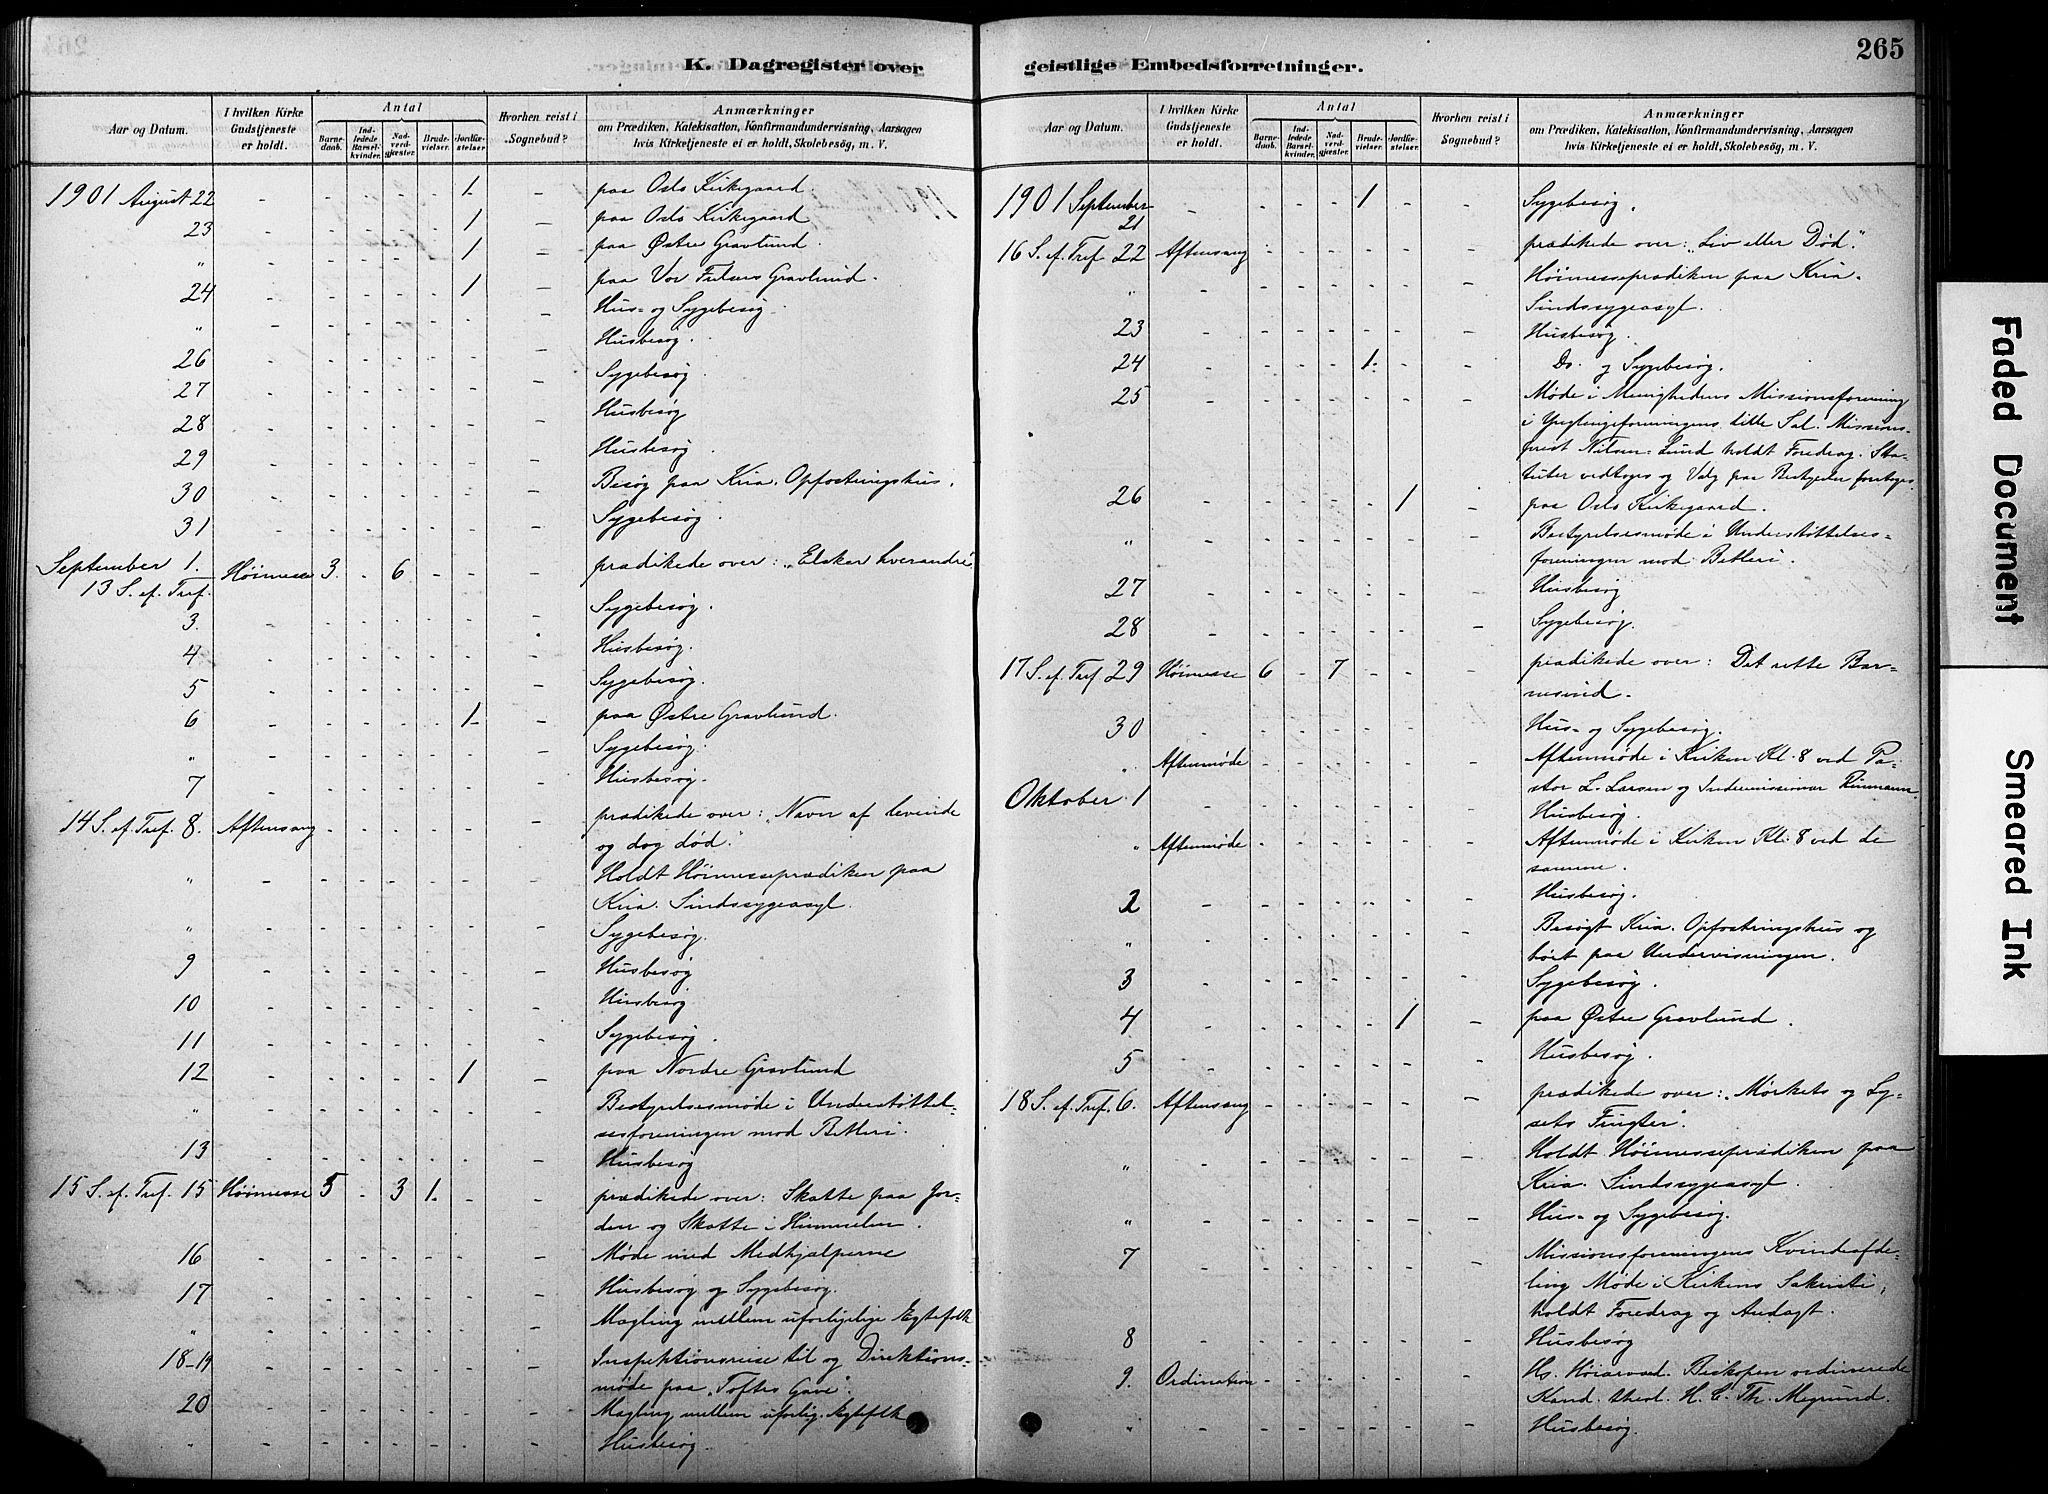 K. Dagregister over
geistlige Embedsforretninger.
265
Aar og Datum.
I hvilken Kirke Gudstjeneste er holdt.
Antal
Barnedaab.
Indledede Barselkvinder.
Nadverdgjæster.
Brudevielser.
Jordfæstelser.
Hvorhen reist i Sognebud?
Anmærkninger
om Prædiken, Katekisation, Konfirmandundervisning, Aarsagen
hvis Kirketjeneste ei er holdt, Skolebesøg, m. V.
1901 August 22 - - - - - 1 - paa Oslo Kirkegaard
23 - - - - - 1 - paa Oslo Kirkegaard
" - - - - - 1 - paa Østre Gravlund.
24 - - - - - 1 - paa Vor Frelsers Gravlund.
" - - - - - - - Hus- og Sygebesøg.
26 - - - - - - - Husbesøg.
27 - - - - - - - Sygebesøg.
28 - - - - - - - Husbesøg
29 - - - - - - - Husbesøg.
30 - - - - - - - Besøg paa Kria. Opfostringshus.
31 - - - - - - - Sygebesøg.
September 1. Høimesse 3. - 6 - - - prædikede over: "Elsker hverandre"
13 S. ef. Tref.
3. - - - - - - - Sygebesøg.
4 - - - - - - - Husbesøg.
5 - - - - - - - Sygebesøg.
6 - - - - - 1 - paa Østre Gravlund.
" - - - - - - - Sygebesøg.
7 - - - - - - - Husbesøg.
14 S. ef. Tref. 8. Aftensang - - - - - - prædikede over: "Navn af levende
og dog død."
" - - - - - - - Holdt Høimesseprædiken paa
Kria. Sindssygeasyl.
" - - - - - - - Sygebesøg.
9 - - - - - - - Husbesøg
10 - - - - - - - Husbesøg
11 - - - - - - - Sygebesøg.
12 - - - - - 1 - paa Nordre Gravlund
" - - - - - - - Bestyrelsesmøde i Understøttel-
sesforeningen mod Betleri.
13 - - - - - - - Husbesøg
15 S. ef. Tref. 15 Høimesse 5 - 3 1. - - prædikede over: Skatte paa Jor-
den og Skatte i Himmelen.
16 - - - - - - - Møde med Medhjælperne
17 - - - - - - - Husbesøg og Sygebesøg.
" - - - - - - - Mægling mellem uforligelige Egtefolk
18-19 - - - - - - - Inspektionsreise til og Direktions-
møde paa "Toftes Gave".
20 - - - - - - - Mægling mellem uforlig. Egtefolk
" - - - - - - - Husbesøg.
Aar og Datum.
I hvilken Kirke Gudstjeneste er holdt.
Antal
Barnedaab.
Indledede Barselkvinder.
Nadverdgjæster.
Brudevielser.
Jordfæstelser.
Hvorhen reist i Sognebud?
Anmærkninger
om Prædiken, Katekisation, Konfirmandundervisning, Aarsagen
hvis Kirketjeneste ei er holdt, Skolebesøg, m. V.
1901 September 21 - - - - 1 - - Sygebesøg.
16 S. ef. Tref. 22 Aftensang - - - - - - prædikede over: "Liv eller Død."
" - - - - - - - Høimesseprædiken paa Kria.
Sindssygeasyl.
23 - - - - - - - Husbesøg.
24 - - - - 1. - - Do. og Sygebesøg.
25 - - - - - - - Møde i Menighedens Missionsforening
i Ynglingeforeningens lille Sal. Missions-
prest Nilsen-Lund holdt Foredrag. Sta-
tuter vedtoges og Valg paa Bestyrelse foretoges.
26 - - - - - 1 - paa Oslo Kirkegaard.
" - - - - - - - Bestyrelsesmøde i Understøttelses-
foreningen mod Betleri.
27 - - - - - - - Husbesøg
28 - - - - - - - Sygebesøg.
17 S. ef. Tref 29 Høimesse 6 - 7 - - - prædikede over: Det rette Bar-
nesind.
30 - - - - - - - Hus- og Sygebesøg.
" Aftenmøde - - - - - - Aftenmøde i Kirken Kl. 8 ved Pa-
stor L. Larsen og Indremissionær
Oktober 1 - - - - - - - Husbesøg.
" Aftenmøde - - - - - - Aftenmøde i Kirken Kl. 8 ved de
samme.
2 - - - - - - - Husbesøg.
" - - - - - - - Besøgt Kria. Opfostringshus og
hørt paa Undervisningen.
3 - - - - - - - Sygebesøg.
4 - - - - - 1 - paa Østre Gravlund.
5 - - - - - - - Husbesøg.
18 S. ef. Tref. 6. Aftensang - - - - - - prædikede over: "Mørkets og Ly-
sets
" - - - - - - - Holdt Høimesseprædiken paa
Kria. Sindssygeasyl.
" - - - - - - - Hus- og Sygebesøg.
7 - - - - - - - Missionsforeningens Kvindeafde-
ling Møde i Kirkens Sakristi;
holdt Foredrag og Andagt.
8 - - - - - - - Husbesøg
9. Ordination - - - - - - Hs. Høiærvd. Biskopen ordinerede
Kand. theol. H. C. Th.
" - - - - - - - Husbesøg.
Faded Document
Smeared Ink